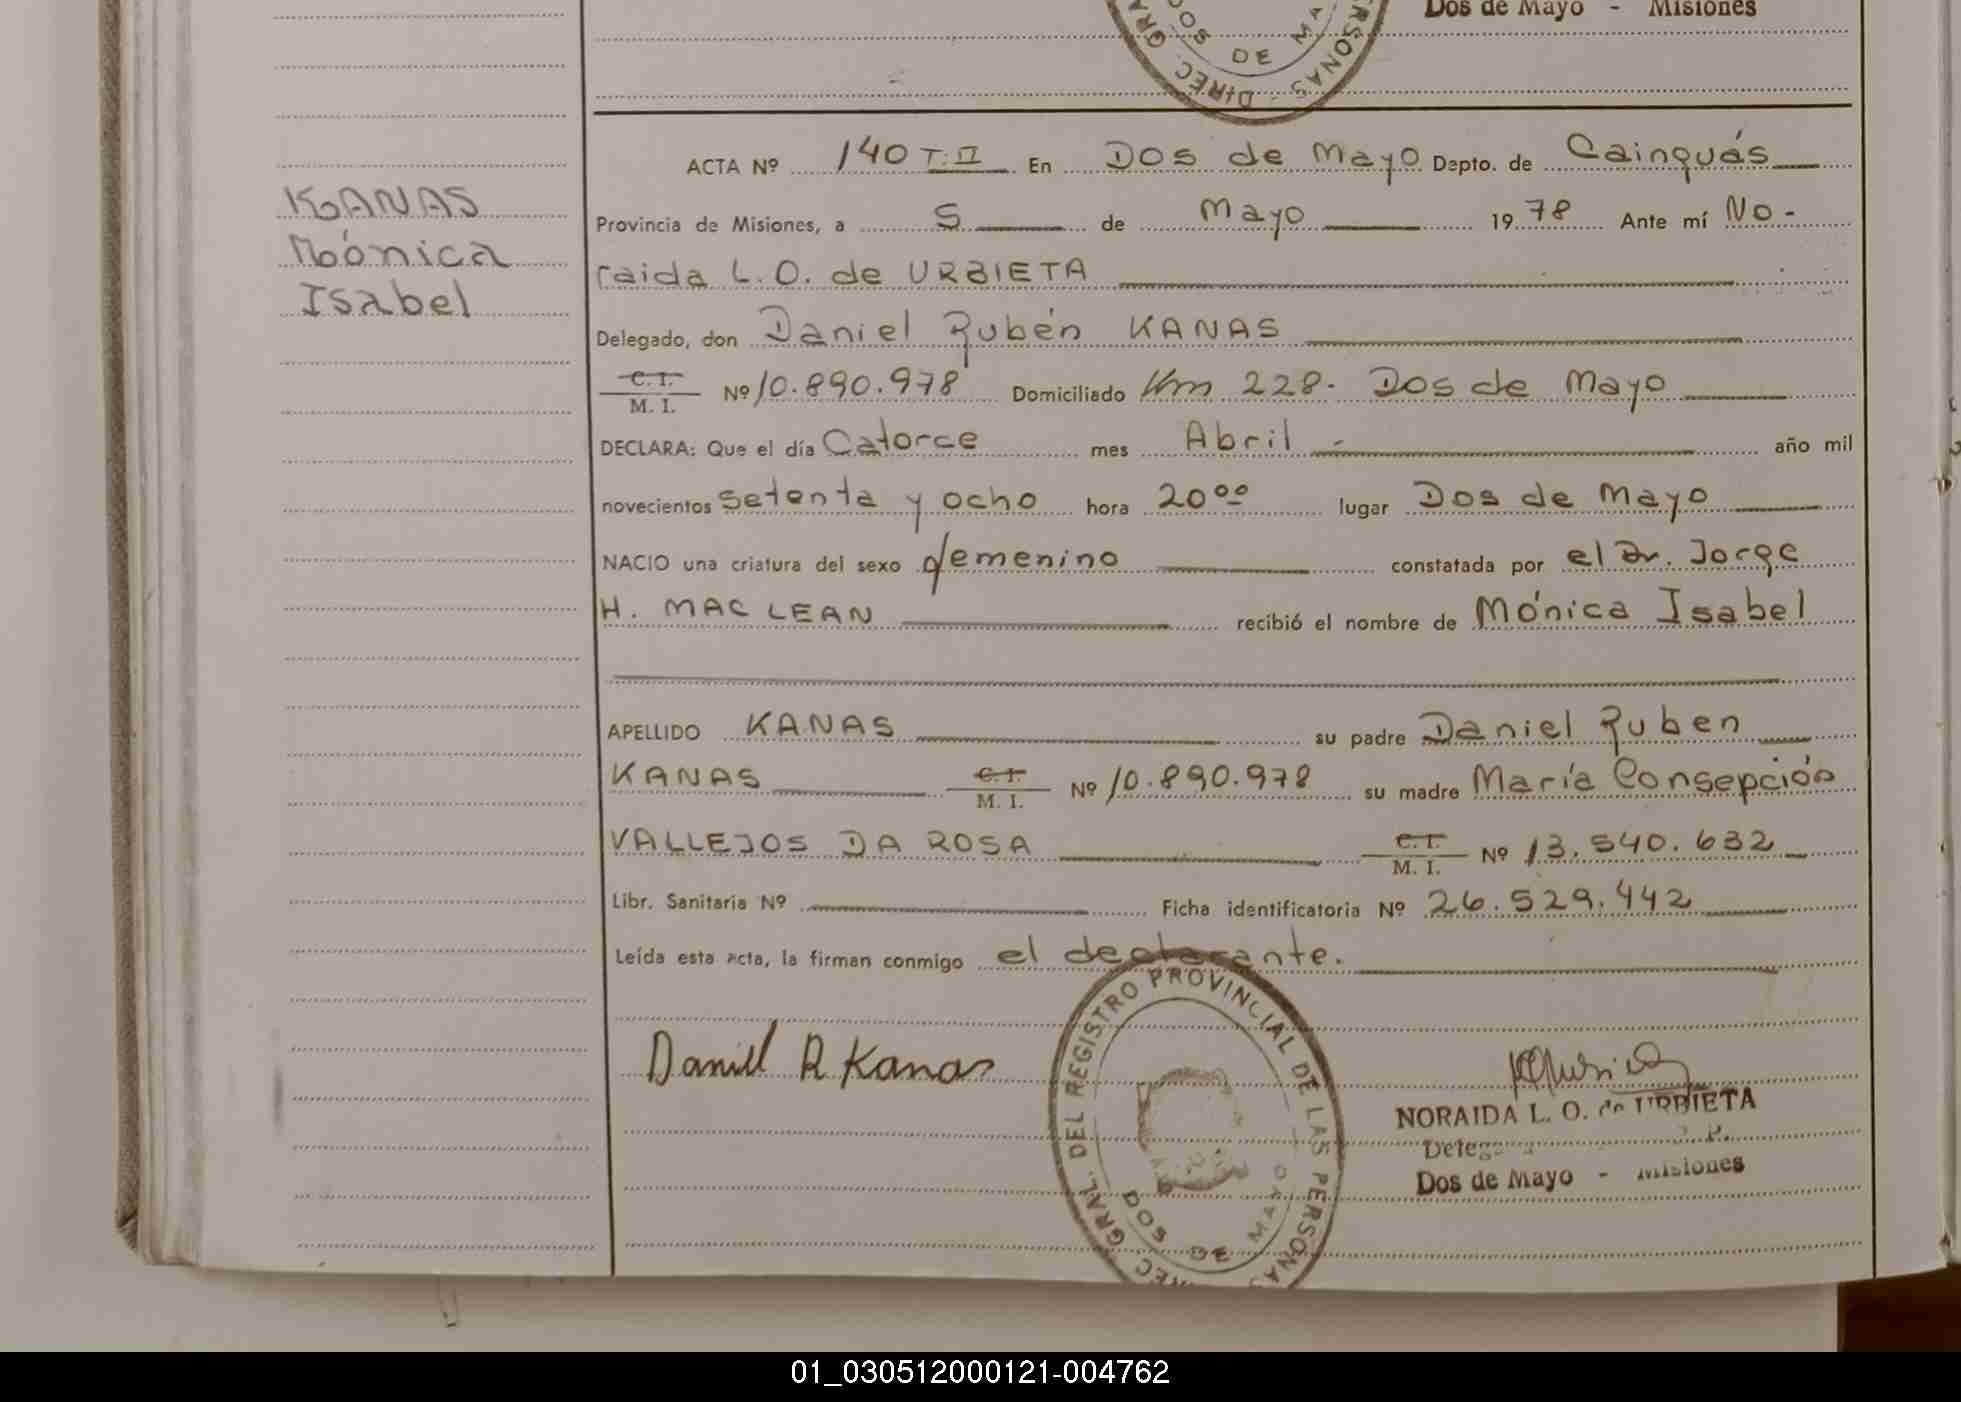 Dos de Mayo - Misiones
DIREC. GRAL. PERSONAS - DOS DE MA
ACTA Nº 140 T: II En Dos de Mayo Dpto. de Cainguás
KANAS
Mónica
Isabel
Provincia de Misiones, a 5 de Mayo 1978 Ante mí No-
raida L. O. de URBIETA
Delegado, don Daniel Rubén KANAS
C. I. M. I. Nº 10.890.978 Domiciliado Km 228. Dos de Mayo
DECLARA: Que el día Catorce mes Abril año mil
novecientos setenta y ocho hora 20ºº lugar Dos de Mayo
NACIO una criatura del sexo femenino constatada por el Dr. Jorge
H. MAC LEAN recibió el nombre de Mónica Isabel
APELLIDO KANAS su padre Daniel Ruben
KANAS C. I. M. I. Nº 10.890.978 su madre María Consepción
VALLEJOS DA ROSA C. I. M. I. Nº 13.540.632
Libr. Sanitaria Nº Ficha identificatoria Nº 26.529.442
Leída esta acta, la firman conmigo el declarante.
DIREC. GRAL. DEL REGISTRO PROVINCIAL DE LAS PERSONAS
DOS DE MAYO
Daniel R Kanas
NORAIDA L. O. de URBIETA
Dos de Mayo - Misiones
01_030512000121-004762